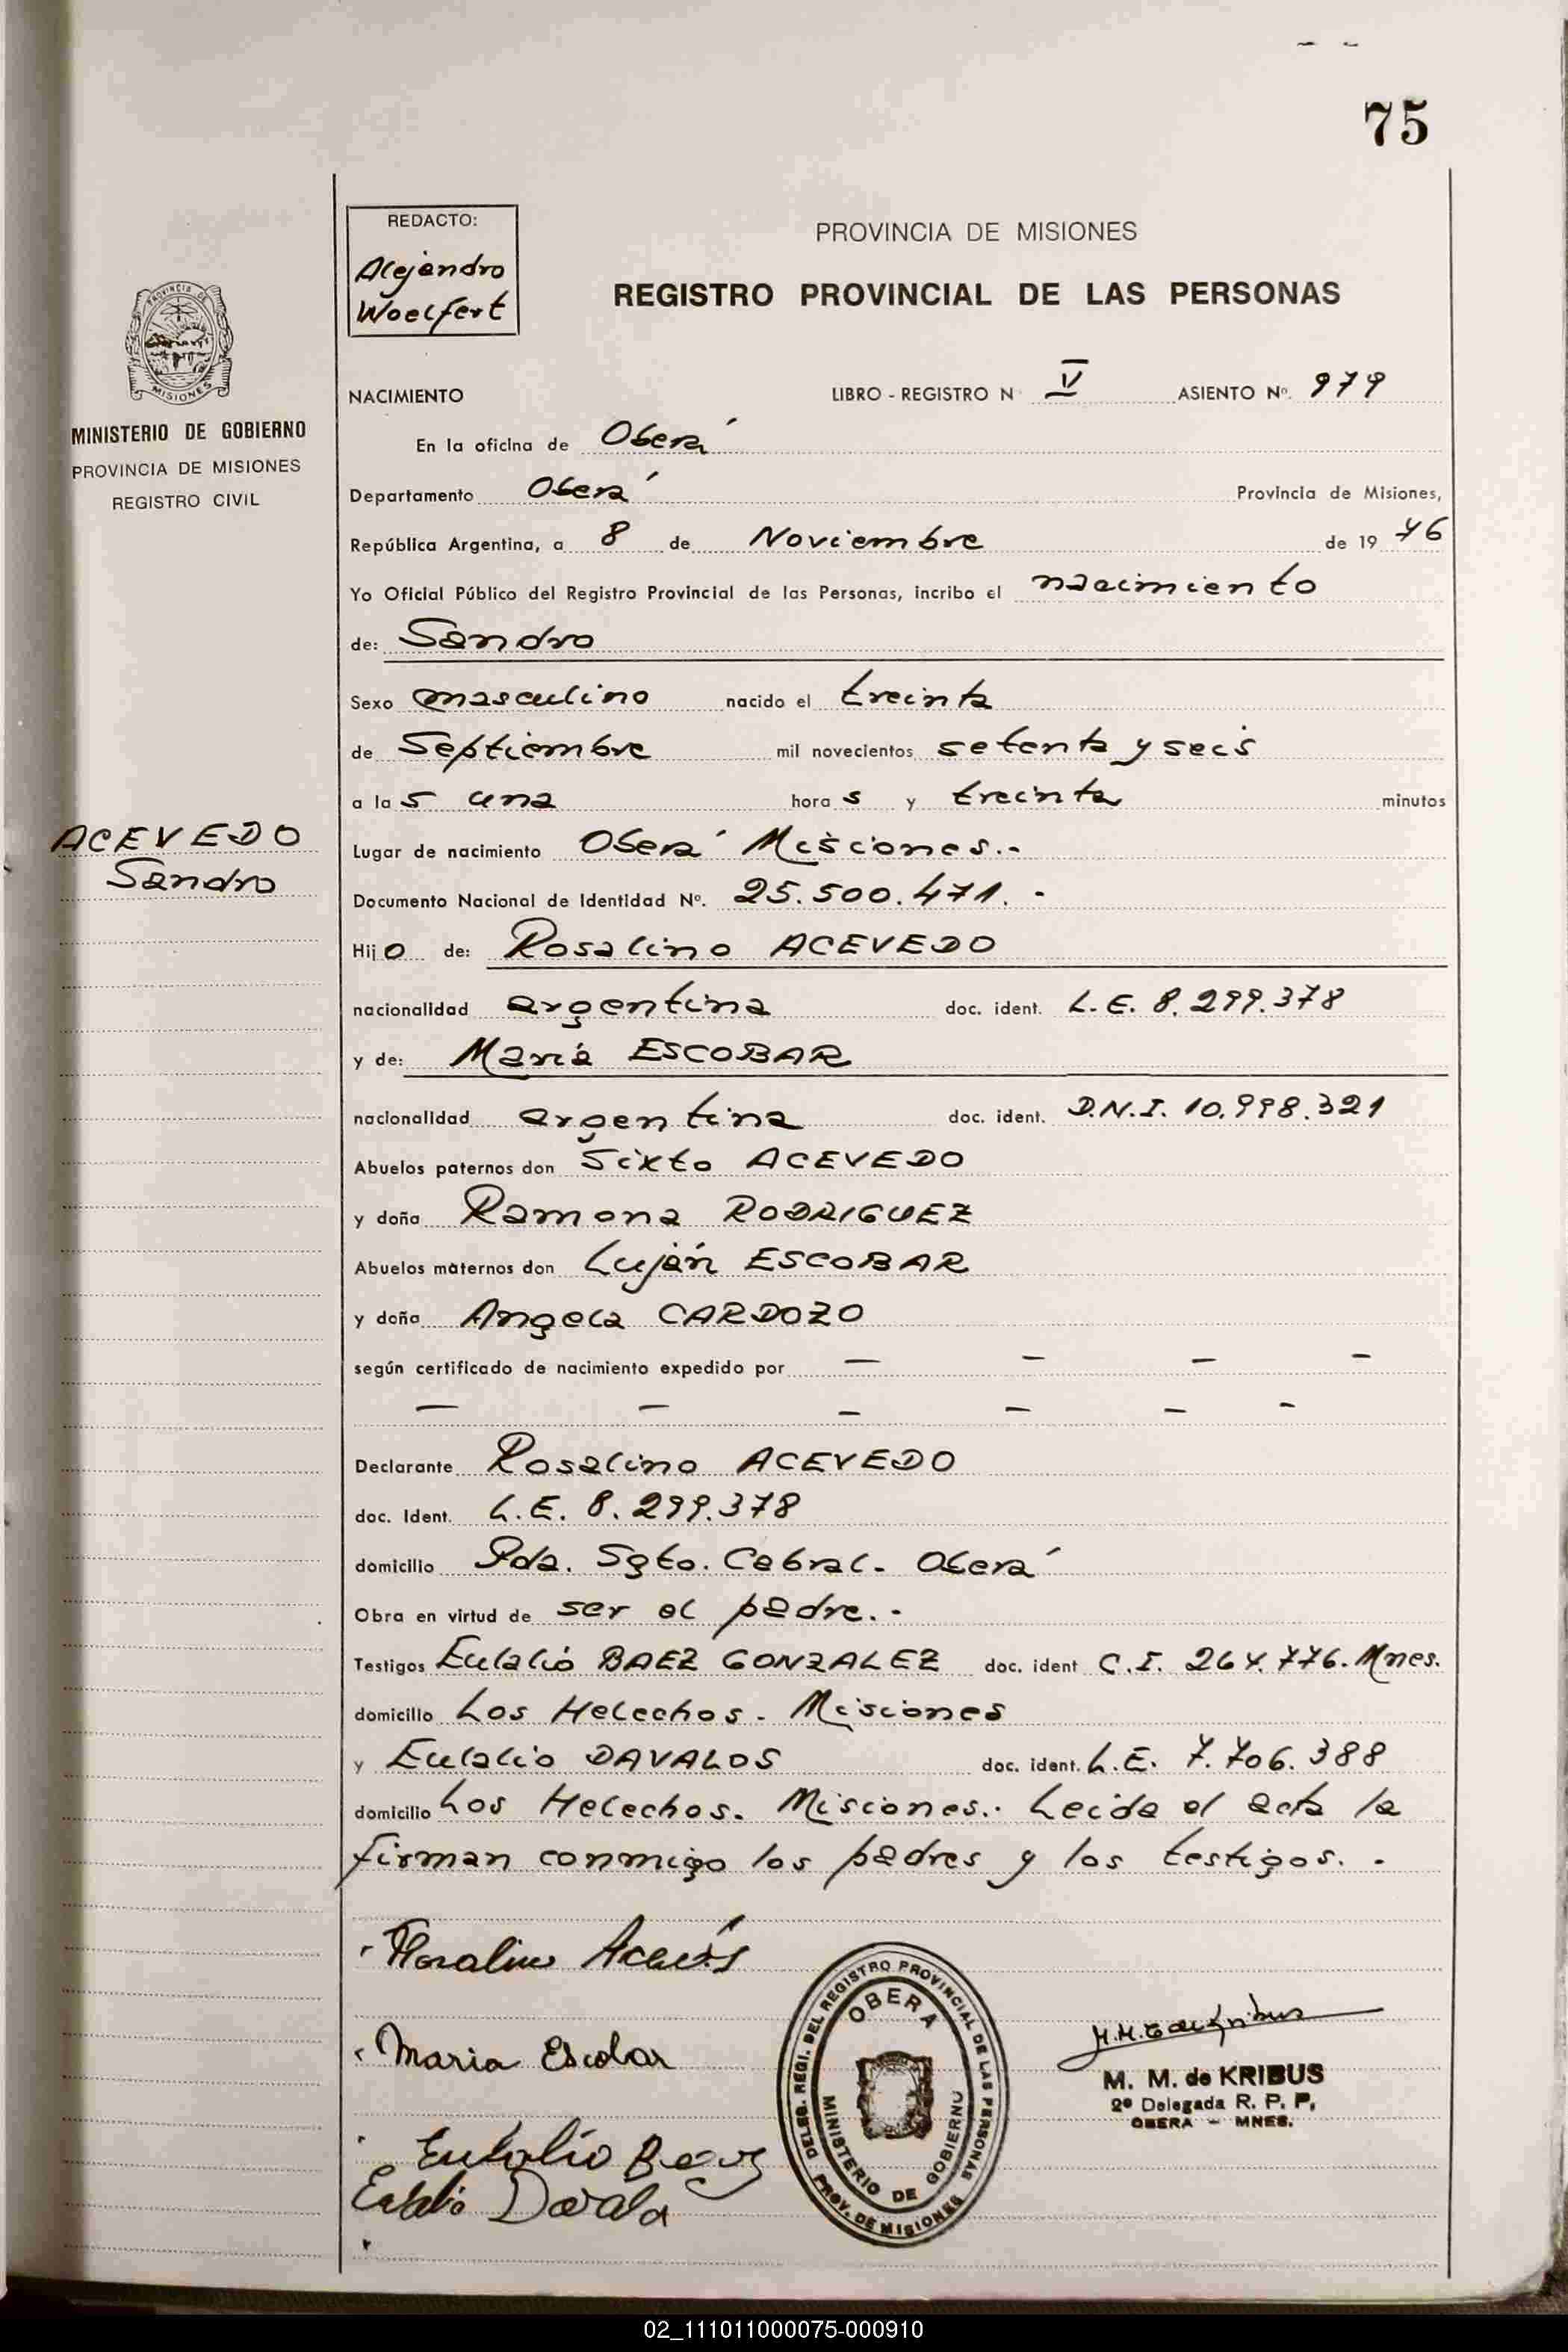 75
REDACTO:
Alejandro
Woelfert
PROVINCIA DE MISIONES
REGISTRO PROVINCIAL DE LAS PERSONAS
PROVINCIA DE
MISIONES
MINISTERIO DE GOBIERNO
PROVINCIA DE MISIONES
REGISTRO CIVIL
NACIMIENTO LIBRO - REGISTRO N V ASIENTO Nº. 979
En la oficina de Oberá
Departamento Oberá Provincia de Misiones,
República Argentina, a 8 de Noviembre de 19 76
Yo Oficial Público del Registro Provincial de las Personas, incribo el nacimiento
de: Sandro
Sexo masculino nacido el treinta
de Septiembre mil novecientos setenta y seis
a la s una hora s y treinta minutos
ACEVEDO
Sandro
Lugar de nacimiento Oberá Misiones.-
Documento Nacional de Identidad Nº. 25.500.471. -
Hij o de: Rosalino ACEVEDO
nacionalidad argentina doc. ident. L.E. 8.299.378
y de: María ESCOBAR
nacionalidad argentina doc. ident. D.N.I. 10.998.321
Abuelos paternos don Sixto ACEVEDO
y doña Ramona RODRIGUEZ
Abuelos maternos don Luján ESCOBAR
y doña Angela CARDOZO
según certificado de nacimiento expedido por — — — —
— — — — — —
Declarante Rosalino ACEVEDO
doc. Ident. L.E. 8.299.378
domicilio Pda. Sgto. Cabral. Oberá
Obra en virtud de ser el padre.-
Testigos Eulalio BAEZ GONZALEZ doc. ident C.I. 264.776. Mnes.
domicilio Los Helechos. Misiones
y Eulalio DAVALOS doc. ident. L.E. 7.706.388
domicilio Los Helechos. Misiones.- Leida el acta la
firman conmigo los padres y los testigos. -
Maria Escobar
Eulalio Baez
DELEG. REGI. DEL REGISTRO PROVINCIAL DE LAS PERSONAS
OBERA
MINISTERIO DE GOBIERNO
PROV. DE MISIONES
M. M. de KRIBUS
2º Delegada R. P. P.
OBERA - MNES.
02_111011000075-000910